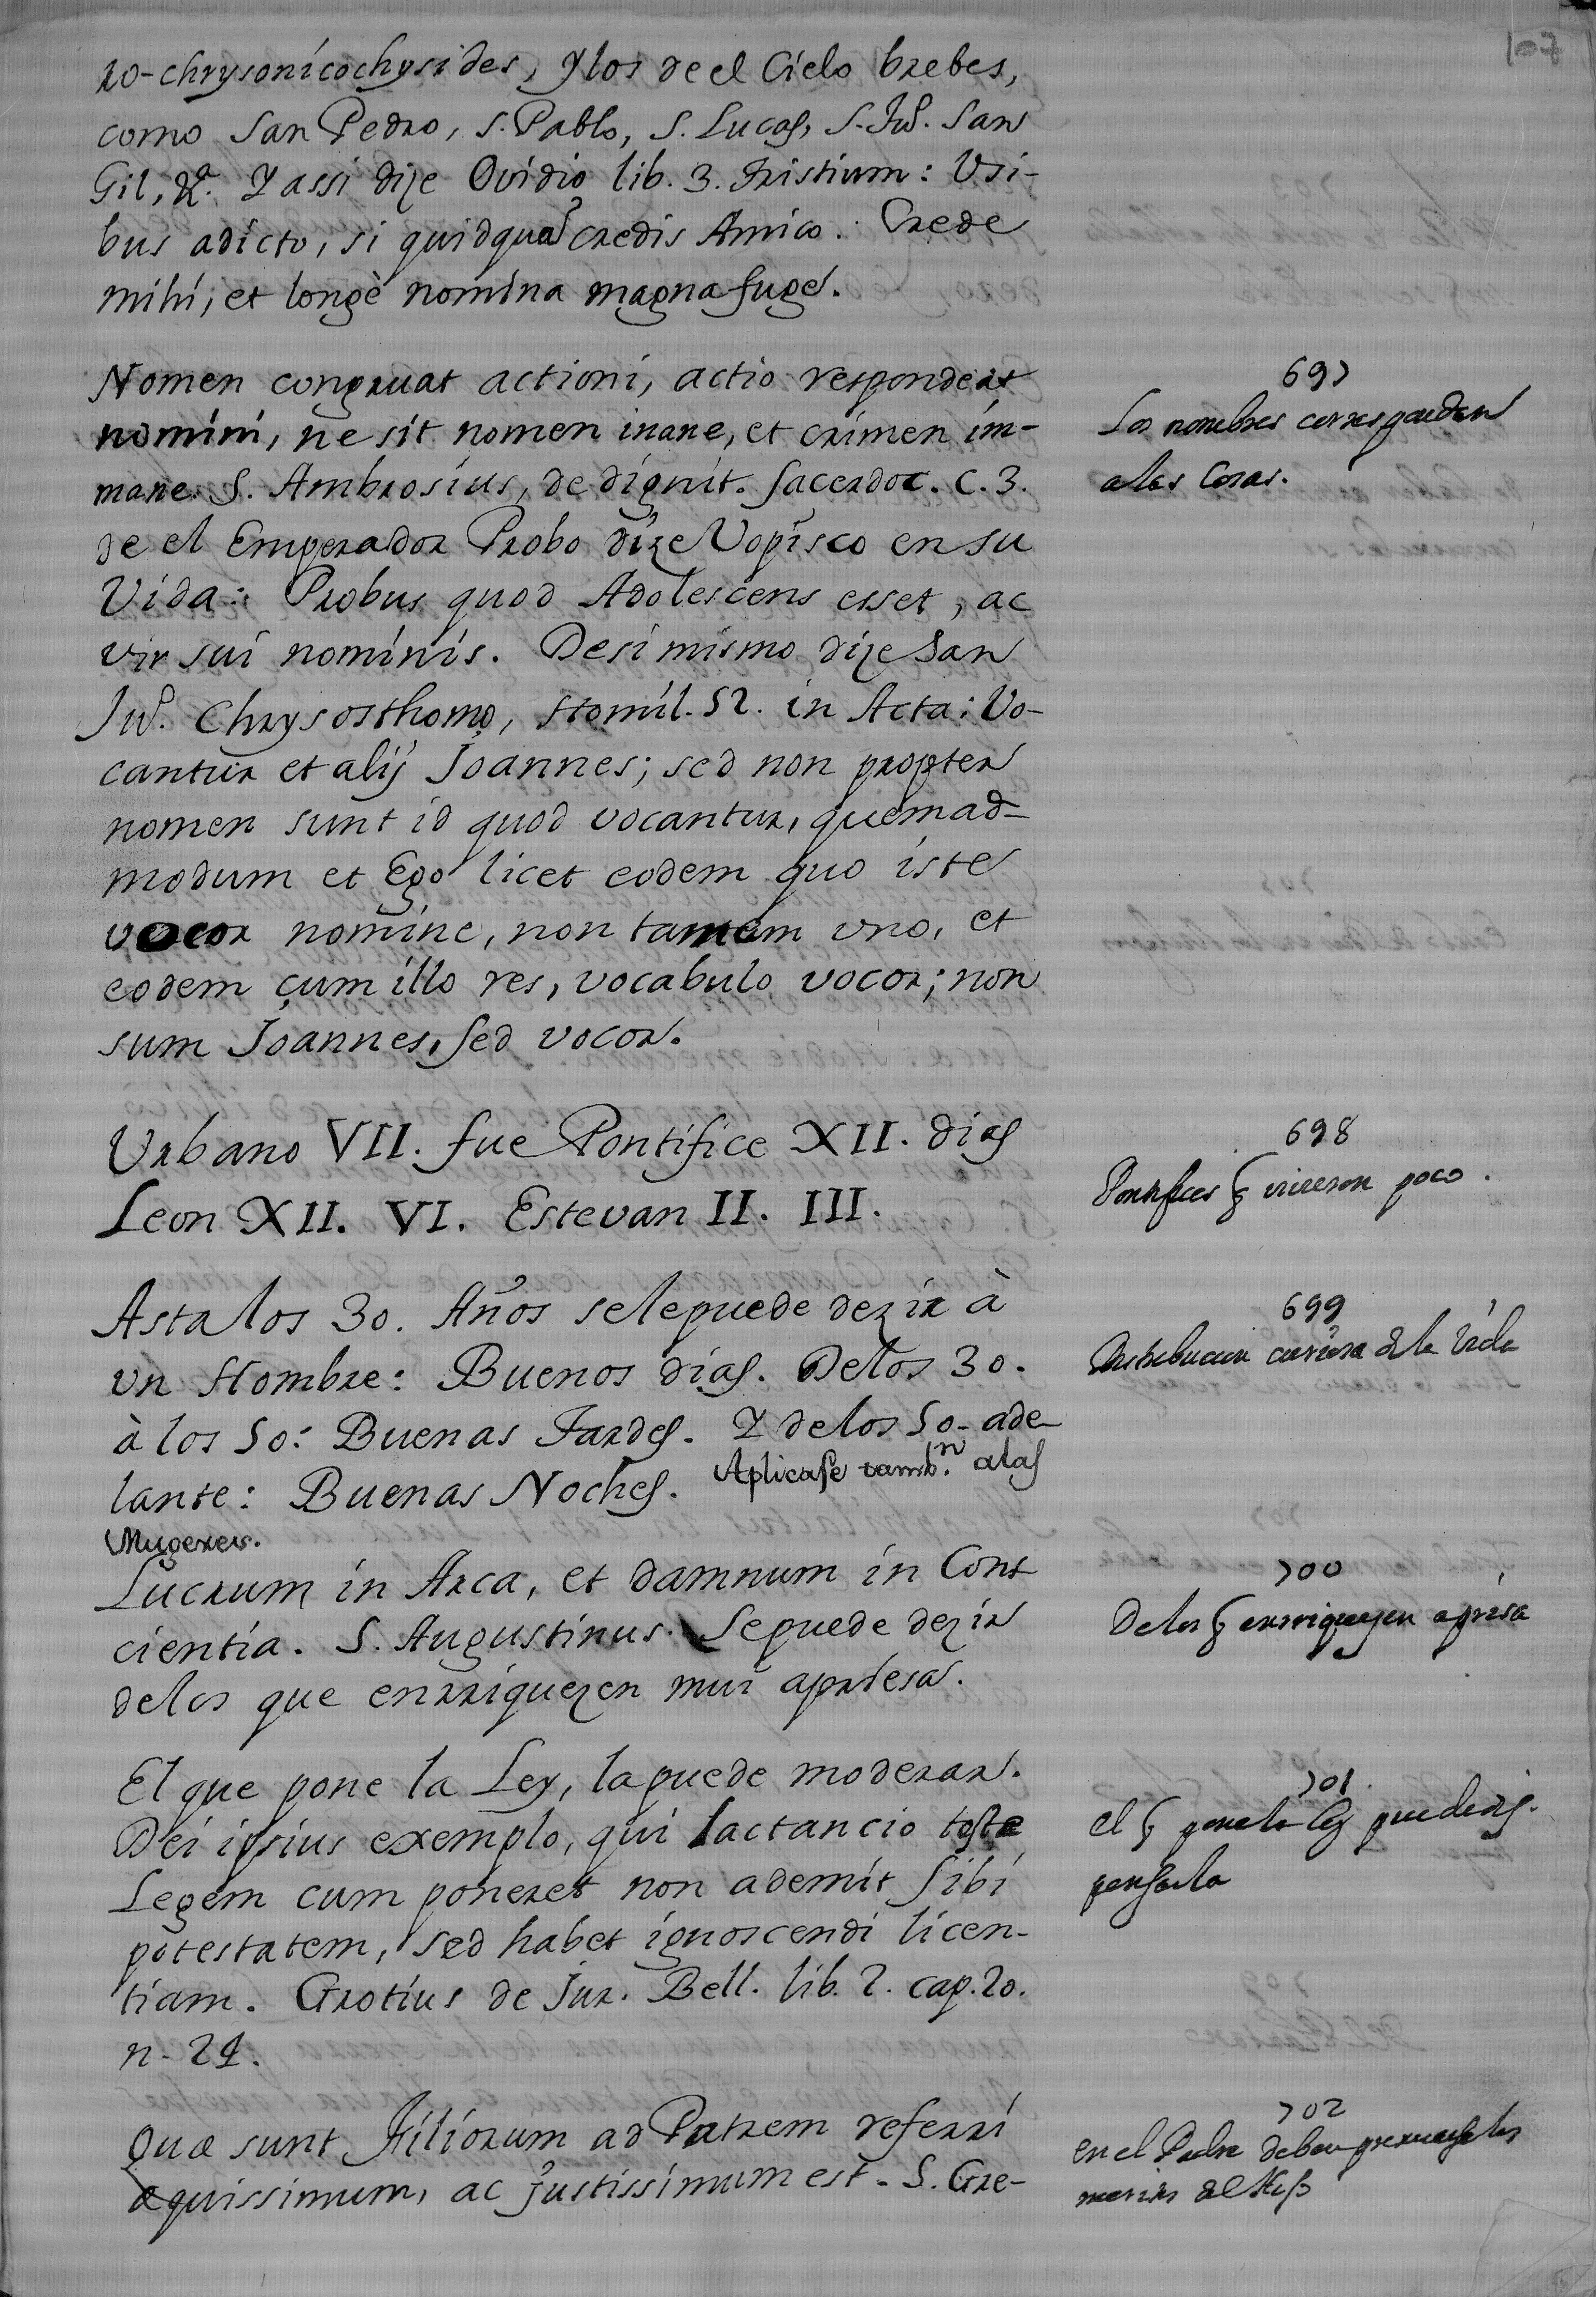 107
ro-chrysonicochysides, y los de el Cielo brebes,
como San Pedro, S. Pablo, S. Lucas, S. Ju.º San
Gil, &ª. Y assi dize Ovidio lib. 3. Tristium: Usi-
bus adicto, si quidquã credis Amico. Crede
mihi, et longè nomina magna fuge.
697
Los nombres correspondan
a las Cosas.
Nomen congruat actioni, actio respondeat
nomini, ne sit nomen inane, et crimen im-
mane. S. Ambrosius, de dignit. Sacerdot. C. 3.
de el Emperador Probo dize Vopisco en su
Vida: Probus quod Adolescens esset, ac
vir sui nominis. De si mismo dize San
Ju.º Chrysosthomo, Homil. 52. in Acta: Vo-
cantur et alij Joannes; sed non propter
nomen sunt id quod vocantur, quemad-
modum et Ego licet eodem quo iste
vocor nomine, non tamem uno, et
eodem cum illo res, vocabulo vocor; non
sum Joannes, sed vocor.
698
Pontifices q vivieron poco.
Urbano VII. fue Pontifice XII. dias
Leon XII. VI. Estevan II. III.
699
Distribucion curiosa de la Vida
Asta los 30. Años se le puede dezir à
un Hombre: Buenos dias. De los 30.
à los 50: Buenas Tardes. Y de los 50- ade-
lante: Buenas Noches. Aplicase tamb.n a las
Mugeres.
700
De los q enrriquezen aprisa
Lucrum in Arca, et damnum in Cons
cientia. S. Augustinus. Se puede dezir
de los que enrriquezen mui apriesa.
701
el q pone la ley puede dis-
pensarla
El que pone la Ley, la puede moderar.
Dei ipsius exemplo, qui lactancio teste
Legem cum poneret non ademit sibi
potestatem, sed habet ignoscendi licen-
tiam. Grotius de Jur. Bell. lib. 2. cap. 20.
n. 24.
702
en el Padre deben premiarse los
meritos del Hijo
Quæ sunt Filiorum ad Patrem referri
æquissimum, ac justissimum est. S. Gre-